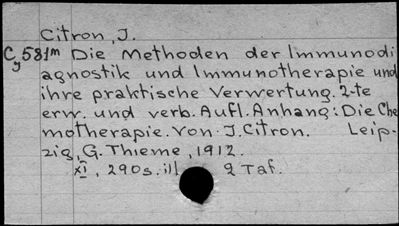 Citron, J.
Cy581m Die Methoden der Immunodi
agnostik und Immunotherapie und
ihre praktische Verwertung. 2-te
erw. und verb. Aufl. Anhang: Die Che
motherapie. Von J. Citron. Leip-
zig, G. Thieme, 1912.
XI, 290s. ill 2 Taf.